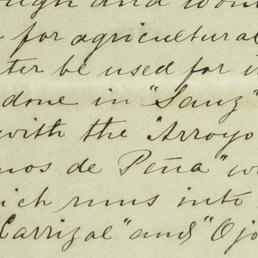 ough and wo
for agricultural
ter be used for i
done in "Sanz"
with the "Arroyo
nos de Peña" w
ich runs into
"Carrizal" and "Ojo